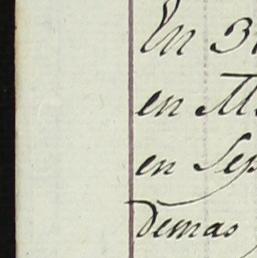 En 3
en M
en Sep
demas